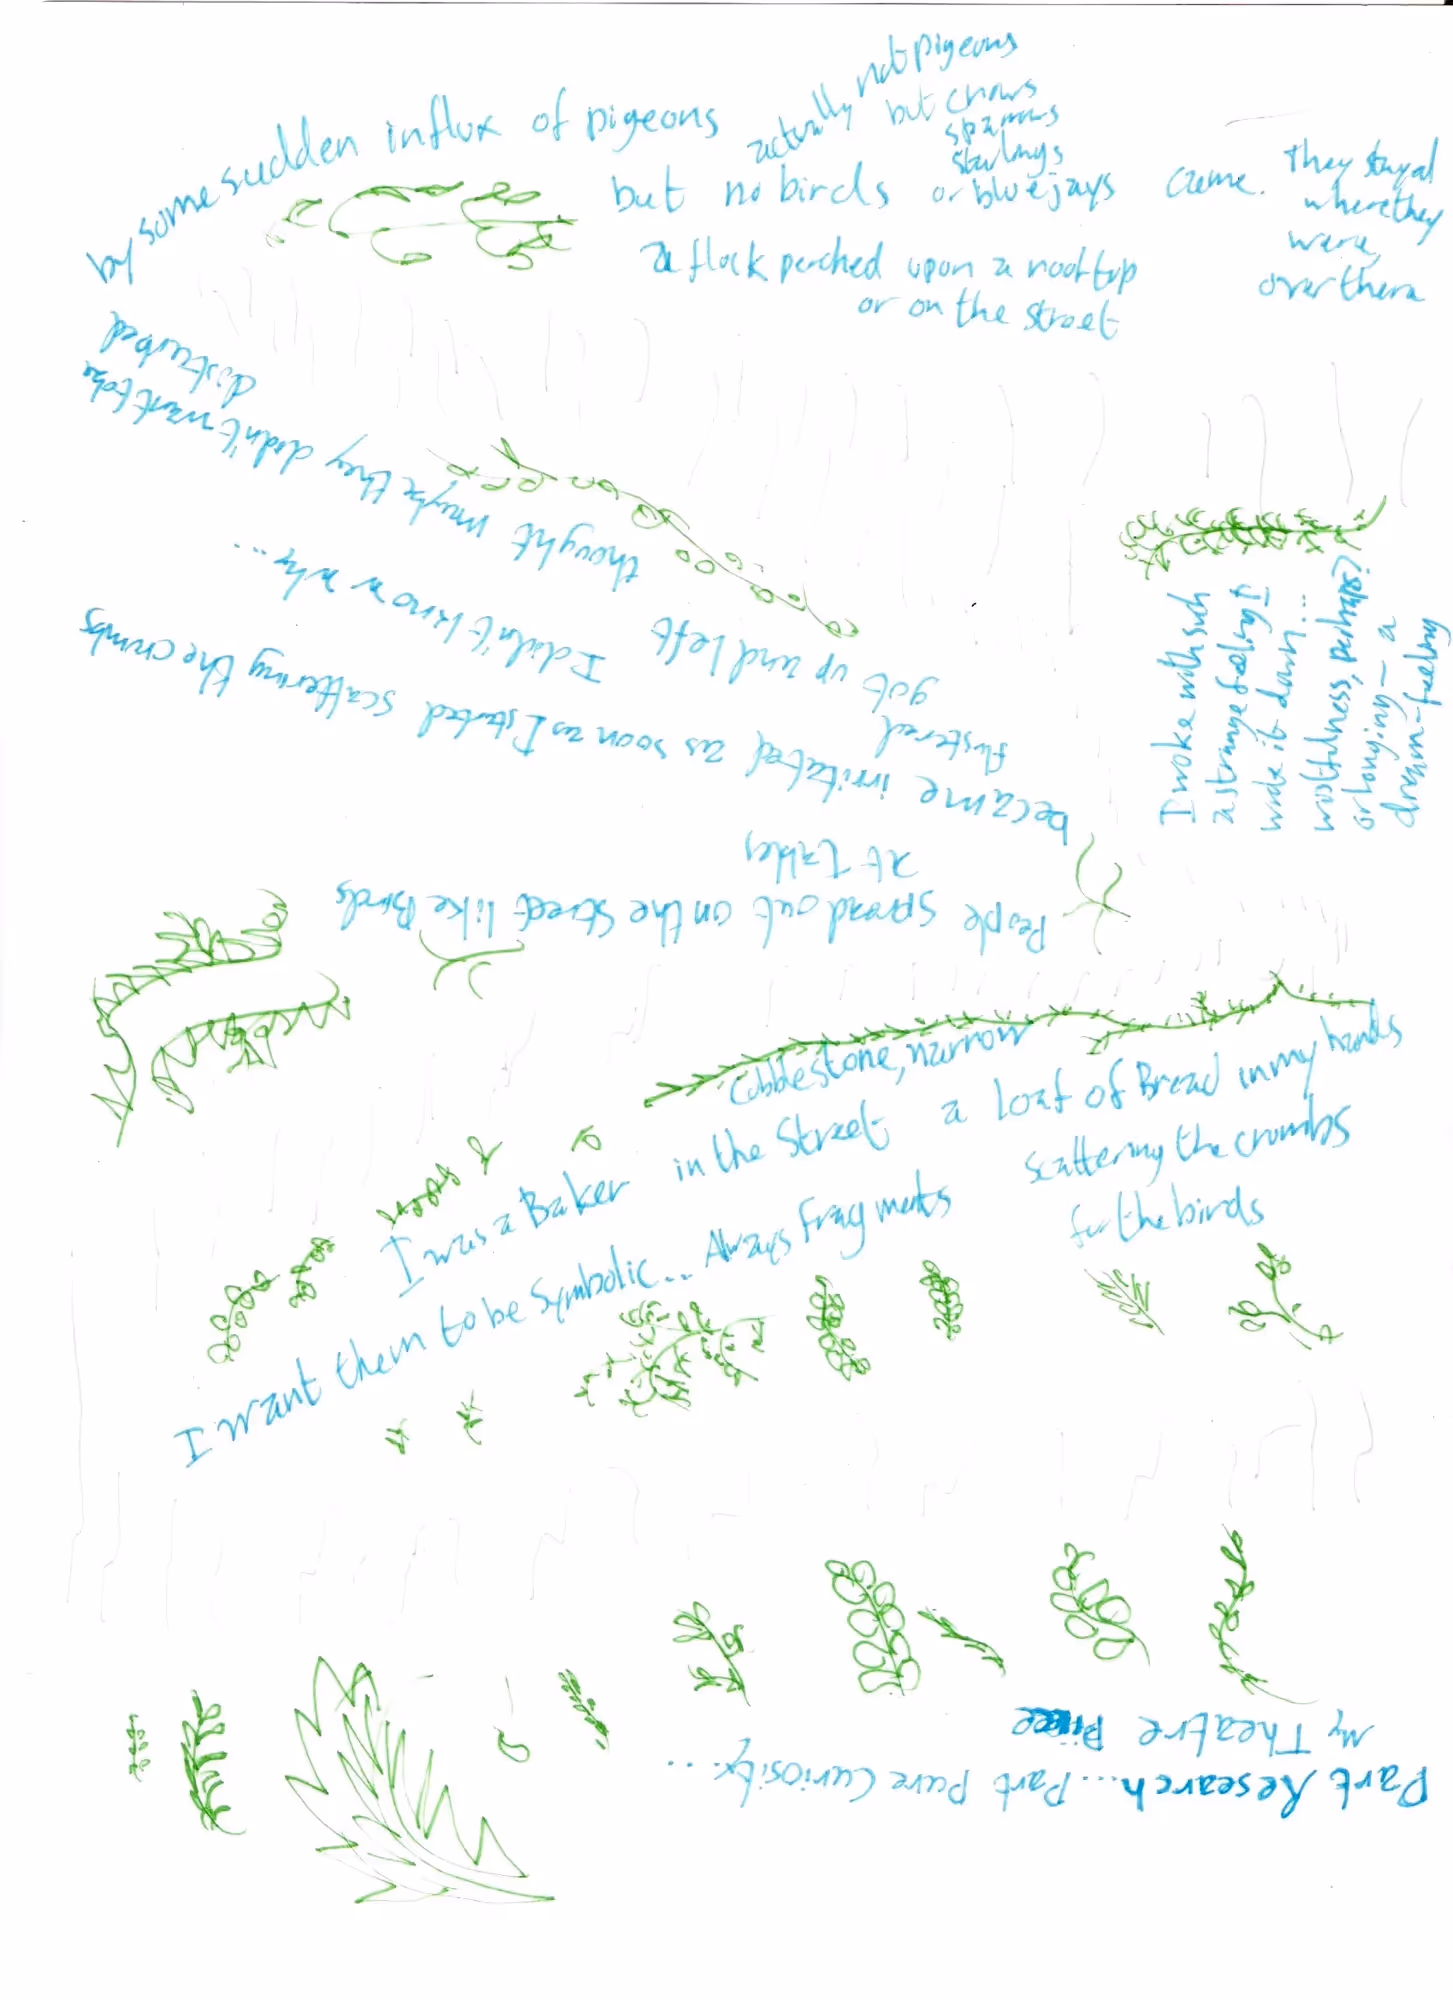 by some sudden influx of pigeons
actually not pigeons
but crows
sparrows
starlings
but no birds or bluejays came.
They stayed
where they
were,
over there
a flock perched upon a rooftop
or on the street
I woke with such
a strange feeling I
wrote it down...
wistfulness, perhaps?
or longing — a
dream-feeling
People spread out on the street like Birds
at tables
became irritated as soon as I started scattering the crumbs
flustered
got up and left I didn't know why...
thought maybe they didn't want to be
disturbed
Cobblestone, narrow
I was a Baker in the Street a loaf of Bread in my hands
scattering the crumbs
for the birds
I want them to be Symbolic... Always Fragments
Part Research... Part Pure Curiosity...
My Theatre Piece